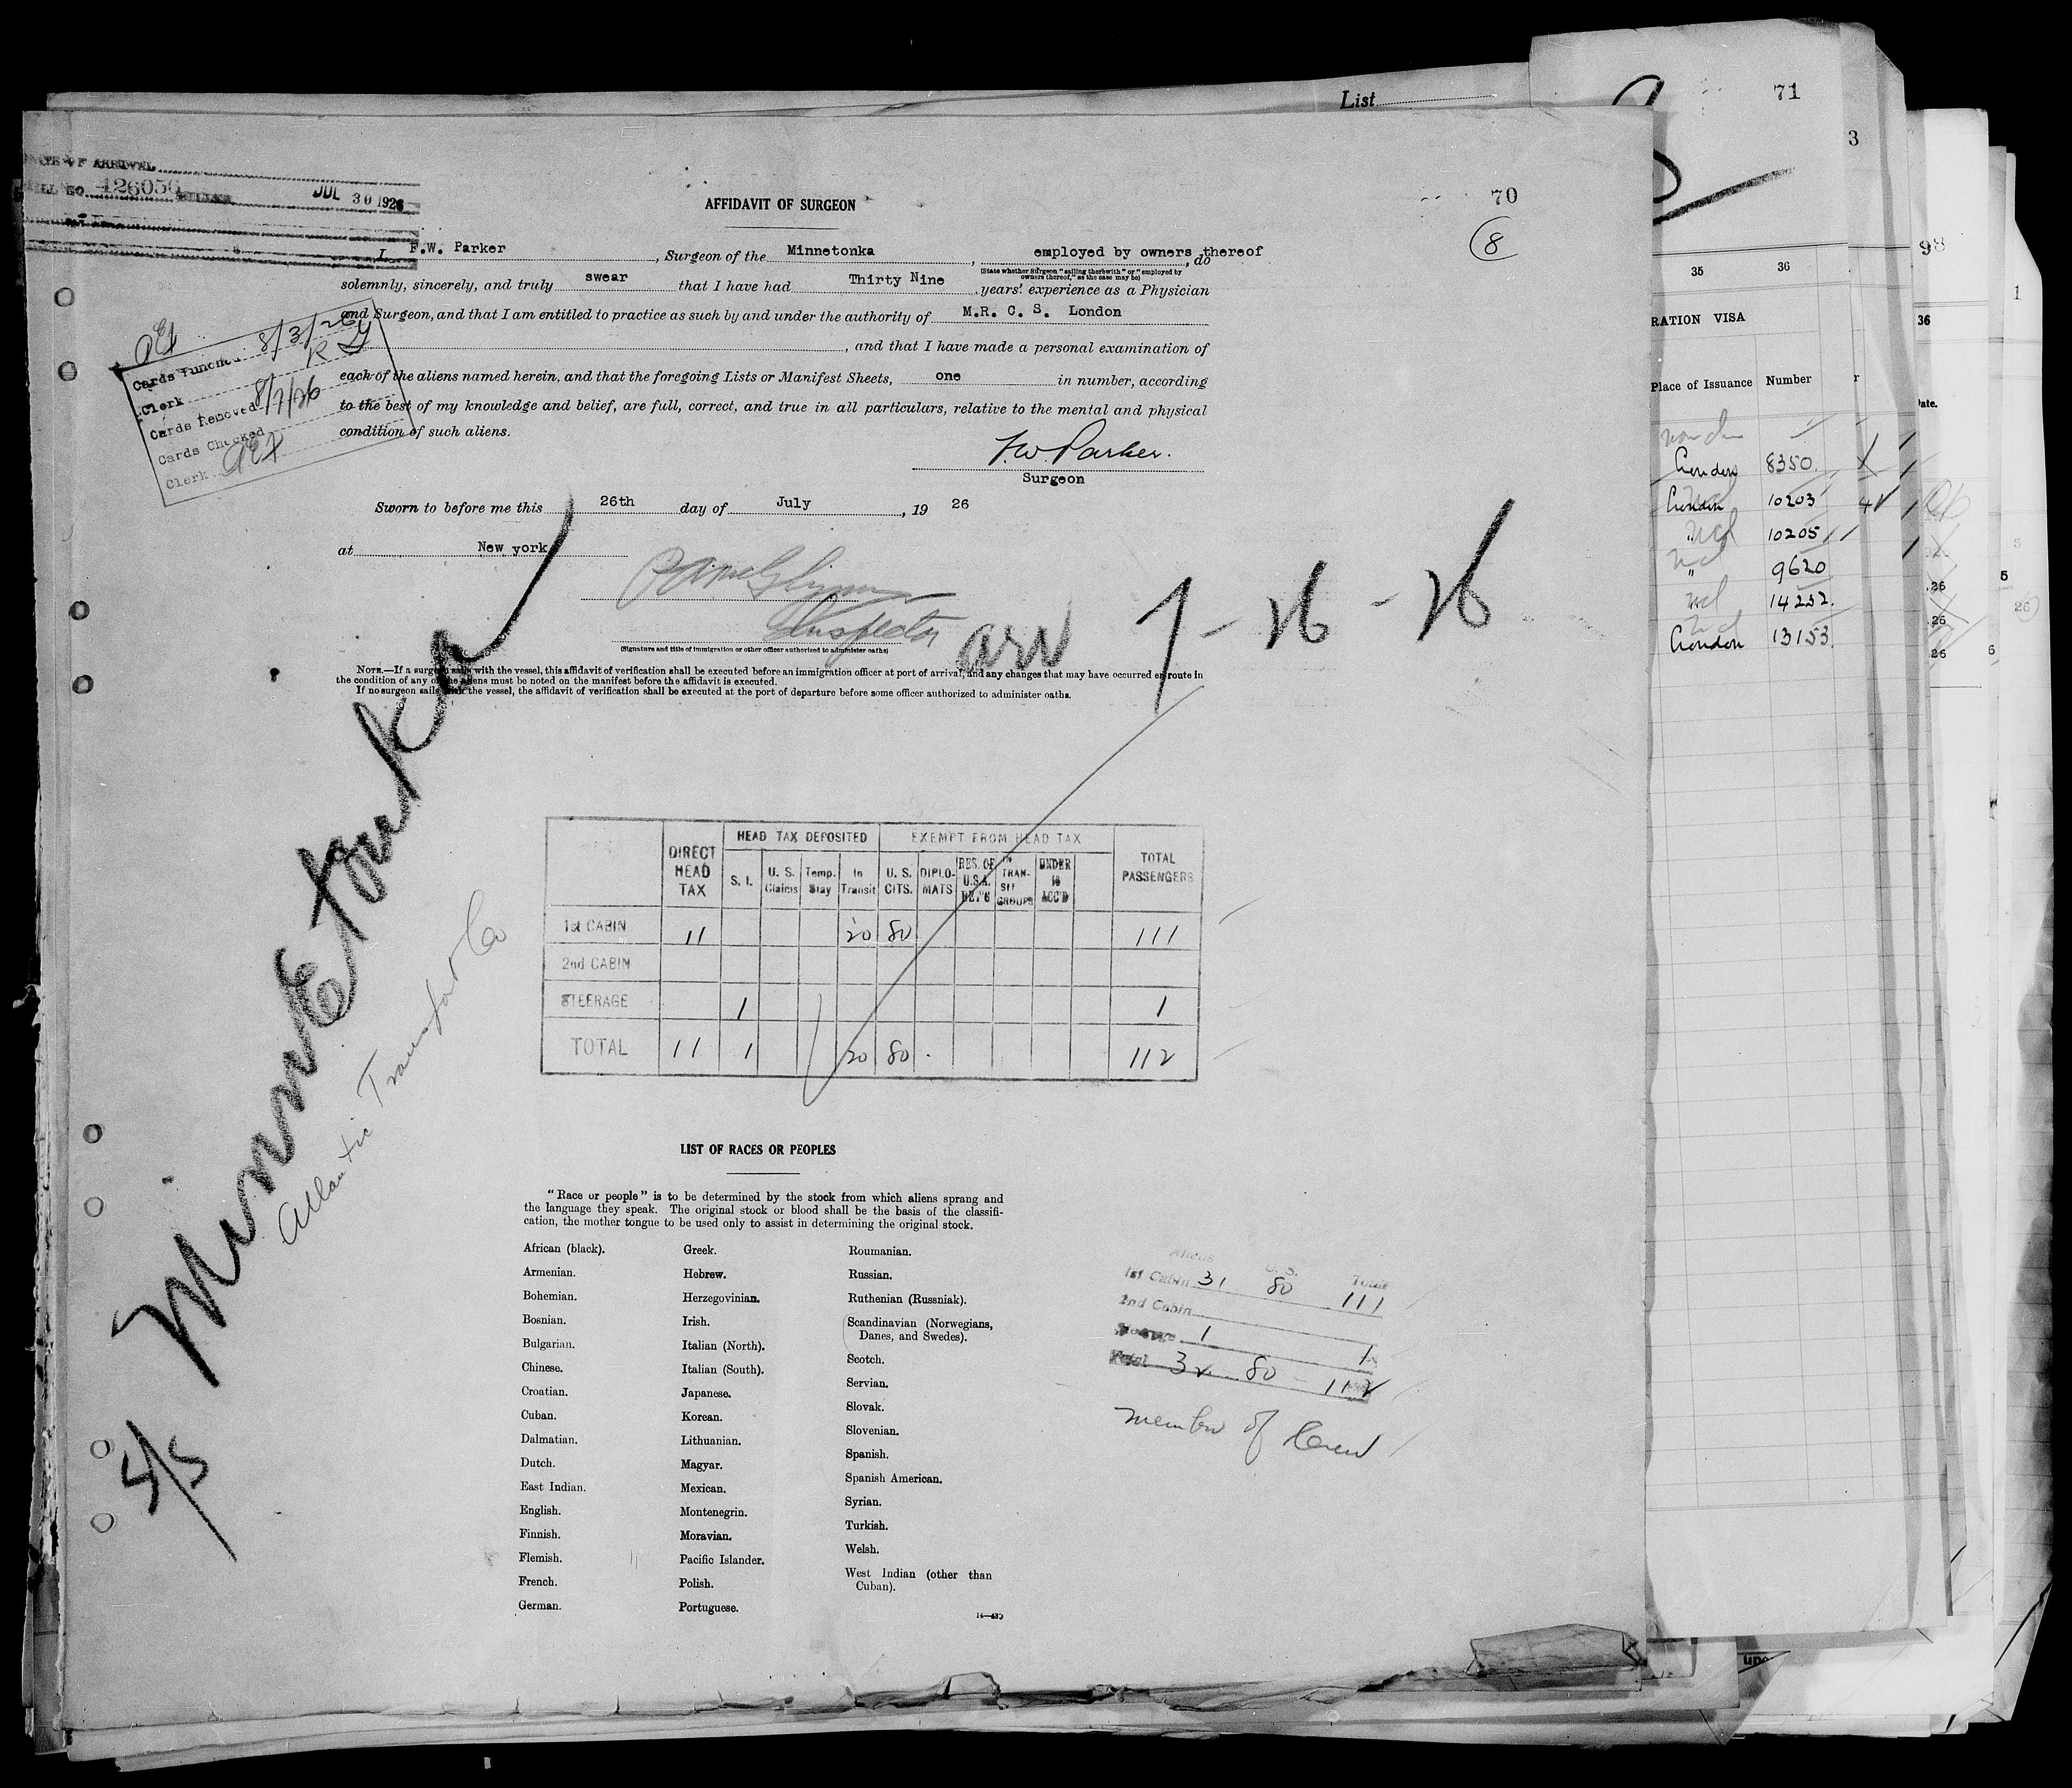 List
71
3
98
1
70
8
126056
JUL 30 1926
AFFIDAVIT OF SURGEON
I, F.W. Parker, Surgeon of the Minnetonka, employed by owners thereof, do
(State whether Surgeon "sailing therewith" or "employed by
owners thereof," as the case may be)
solemnly, sincerely, and truly swear that I have had Thirty Nine years' experience as a Physician
and Surgeon, and that I am entitled to practice as such by and under the authority of M.R. C. S. London
, and that I have made a personal examination of
each of the aliens named herein, and that the foregoing Lists or Manifest Sheets, one in number, according
to the best of my knowledge and belief, are full, correct, and true in all particulars, relative to the mental and physical
condition of such aliens.
F.W. Parker.
Surgeon
Sworn to before me this 26th day of July, 19 26
at New york
Inspector
(Signature and title of immigration or other officer authorized to administer oaths)
arr 7-26-26
NOTE.—If a surgeon sails with the vessel, this affidavit of verification shall be executed before an immigration officer at port of arrival, and any changes that may have occurred en route in
the condition of any of the aliens must be noted on the manifest before the affidavit is executed.
If no surgeon sails with the vessel, the affidavit of verification shall be executed at the port of departure before some officer authorized to administer oaths.
Cards Punched 8/3/26
Clerk
Cards Removed 8/7/26
Cards Checked
Clerk
MinnEtonka
Atlantic Transport Co
4/5
DIRECT HEAD TAX
HEAD TAX DEPOSITED
EXEMPT FROM HEAD TAX
TOTAL PASSENGERS
S. I.
U. S. Claims
Temp. Stay
In Transit
U. S. CITS.
DIPLO-MATS
RES. OF U.S.A. RET'G
IN TRAN-SIT GROUPS
UNDER 16 ACC'D
1st CABIN 11 20 80 111
2nd CABIN
STEERAGE 1 1
TOTAL 11 1 20 80 112
LIST OF RACES OR PEOPLES
"Race or people" is to be determined by the stock from which aliens sprang and
the language they speak. The original stock or blood shall be the basis of the classifi-
cation, the mother tongue to be used only to assist in determining the original stock.
African (black).
Armenian.
Bohemian.
Bosnian.
Bulgarian.
Chinese.
Croatian.
Cuban.
Dalmatian.
Dutch.
East Indian.
English.
Finnish.
Flemish.
French.
German.
Greek.
Hebrew.
Herzegovinian.
Irish.
Italian (North).
Italian (South).
Japanese.
Korean.
Lithuanian.
Magyar.
Mexican.
Montenegrin.
Moravian.
Pacific Islander.
Polish.
Portuguese.
Roumanian.
Russian.
Ruthenian (Russniak).
Scandinavian (Norwegians,
Danes, and Swedes).
Scotch.
Servian.
Slovak.
Slovenian.
Spanish.
Spanish American.
Syrian.
Turkish.
Welsh.
West Indian (other than
Cuban).
Aliens U. S. Total
1st Cabin 31 80 111
2nd Cabin
Steerage 1 1
Total 32 80 112
member of Crew
35 36
RATION VISA
Place of Issuance Number
London 8350
London 10203
10205
" 9620
14232
London 13153
36
Date.